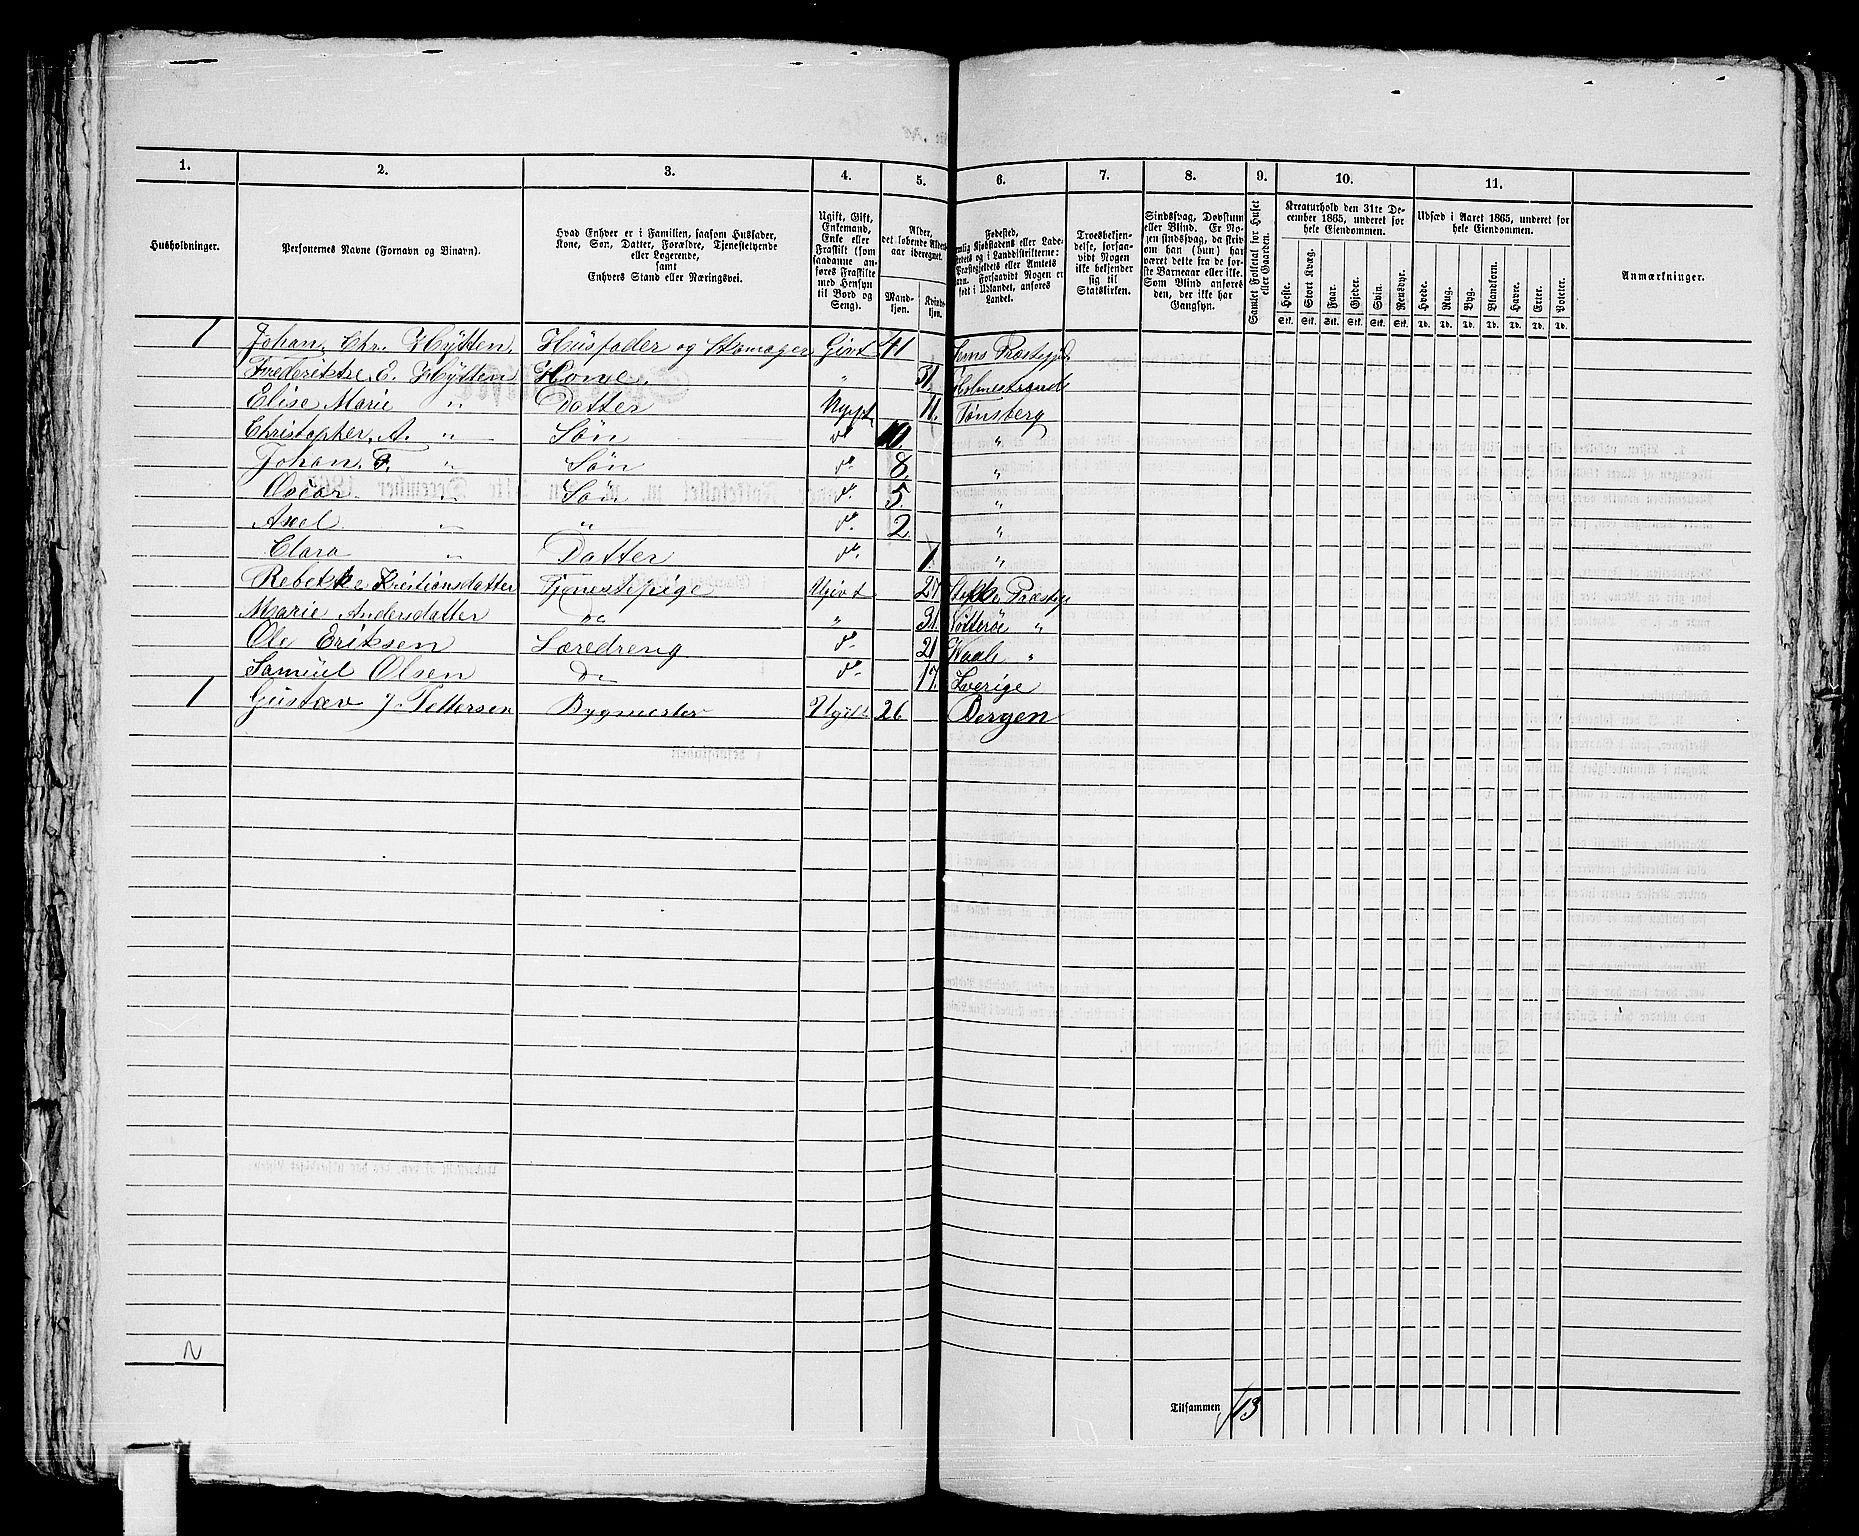 1. 2. 3. 4. 5. 6. 7. 8. 9. 10. 11.
Husholdninger.
Personernes Navne (Fornavn og Binavn).
Hvad Enhver er i Familien, saasom Husfader,
Kone, Søn, Datter, Forældre, Tjenestetyende
eller Logerende,
samt
Enhvers Stand eller Næringsvei.
Ugift, Gift,
Enkemand,
Enke eller
Fraskilt (som
saadanne an-
føres Fraskilte
med Hensyn
til Bord og
Seng).
Alder,
det løbende Alders-
aar iberegnet.
Mand-
kjøn.
Kvinde-
kjøn.
Fødested,
nemlig Kjøbstadens eller Lade-
stedets og i Landdistrikterne:
Præstegjeldets eller Amtets
Navn. Forsaavidt Nogen er
født i Udlandet, anføres
Landet.
Troesbekjen-
delse, forsaa-
vidt Nogen
ikke bekjender
sig til
Statskirken.
Sindssvag, Døvstum
eller Blind. Er No-
jen sindssvag, da skriv
om han (hun) har
været dette fra de før-
ste Barneaar eller ikke.
Som Blind anføres
den, der ikke har
Gangsyn.
Samlet Folketal for Huset
eller Gaarden.
Kreaturhold den 31te De-
cember 1865, underet for
hele Eiendommen.
Heste. Stort Kvæg. Faar. Gjeder. Svin. Rensdyr.
Stk. Stk. Stk. Stk. Stk. Stk.
Udsæd i Aaret 1865, underet for
hele Eiendommen.
Hvede. Rug. Byg. Blandkorn. Havre. Erter. Poteter.
Td. Td. Td. Td. Td. Td. Td.
Anmærkninger.
1 Johan Chr. Hÿtten. Hüsfader og Skomager Givt 41 Sems Præstegjd
Frederikke E. Hÿtten Kone. " 31. Holmestrand
Elise Marie " Datter Ugift 11. Tønsberg
Christopher A. " Søn do 10. "
Johan F. " Søn do 8. "
Oscar " Søn do 5. "
Axel " " do 2. "
Clara " Datter do 1. "
Rebekke Kristiansdatter Tjenestepige Ugivt 27 Stokke Præstg
Marie Andersdatter do " 31. Nøtterøe "
Ole Eriksen Læredreng do 21 Vaale "
Samüel Olsen do do 17. Sverige
1 Gustav J. Pettersen Bygmester Ugift 26 Bergen
2
Tilsammen 13